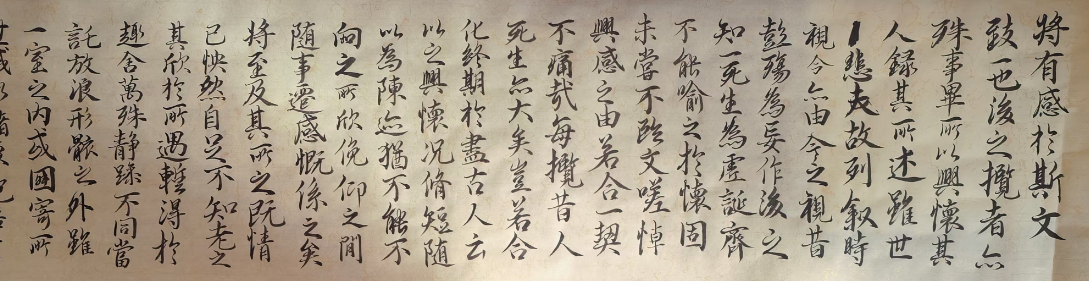 一室之内或國寄所
託放浪形骸之外雖
趣舍萬殊静躁不同當
其欣於所遇輒得於
己怏然自足不知老之
将至及其所之既情
随事遷感慨係之矣
向之所欣俛仰之間
以為陳迹猶不能不
以之興懷况脩短随
化終期於盡古人云
死生亦大矣豈若合
不痛哉每攬昔人
興感之由若合一契
未嘗不臨文嗟悼
不能喻之於懷固
知一死生為虛誕齊
彭殤為妄作後之
視今亦由今之視昔
悲夫故列叙時
人録其所述雖世
殊事畢所以興懷其
致一也後之攬者亦
将有感於斯文